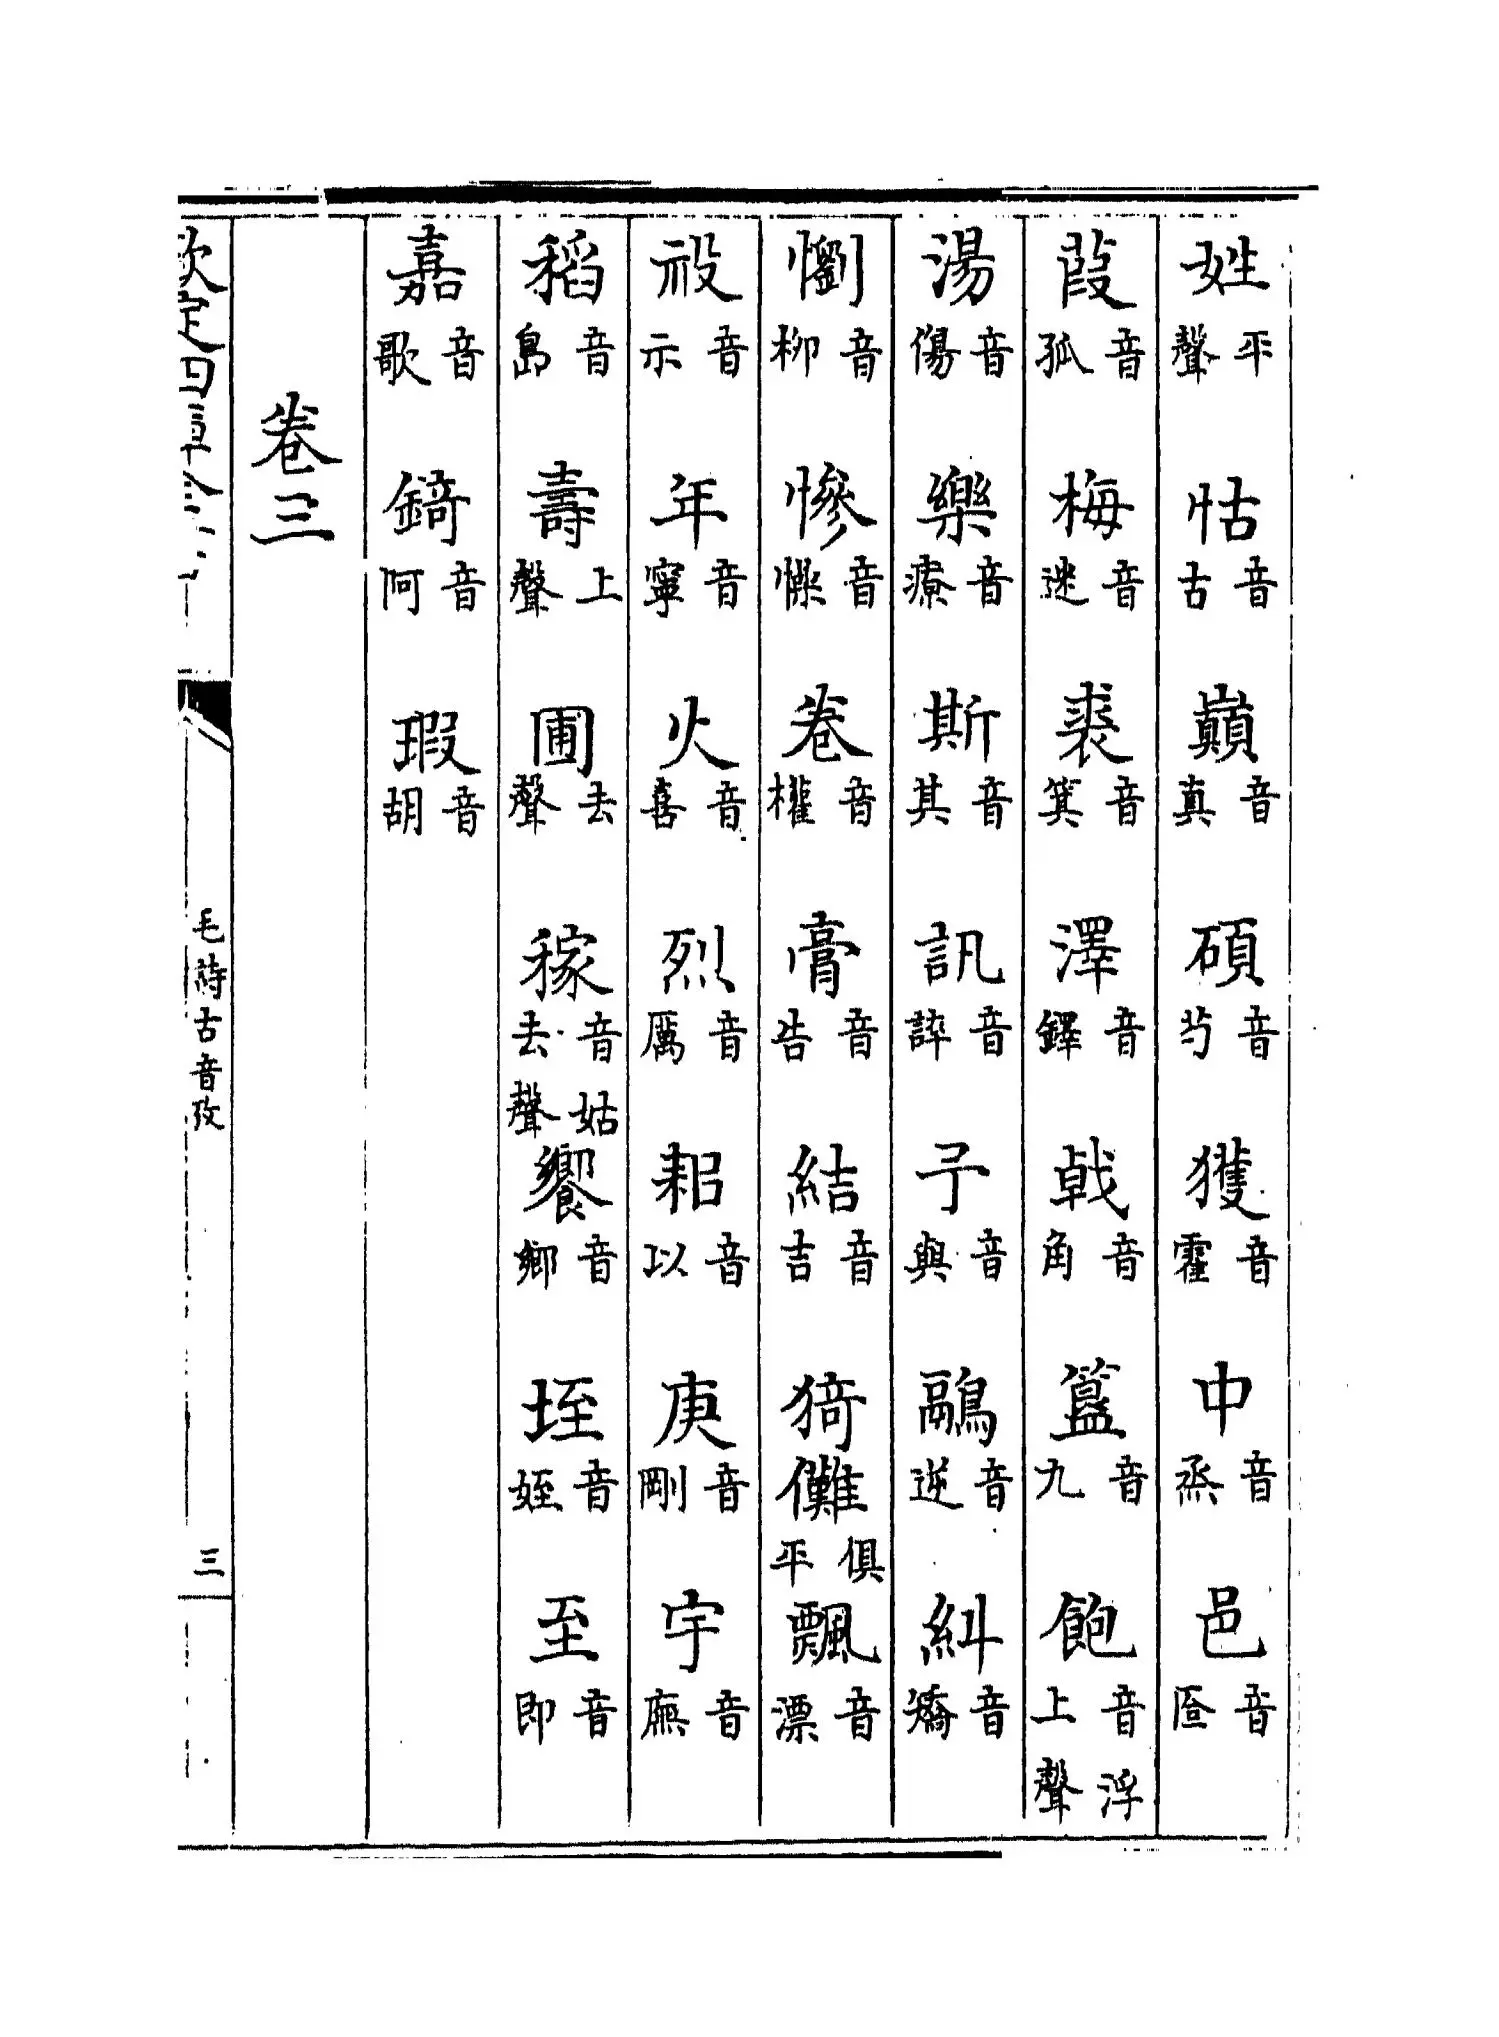 姓平聲 怙音古 巔音真 碩音芍 獲音霍 中音烝 邑音唈
葭音孤 梅音迷 裘音箕 澤音鐸 戟音角 簋音九 飽音浮上聲
湯音傷 樂音療 斯音其 訊音誶 予音與 鷊音逆 糾音矯
懰音柳 慘音懆 卷音權 膏音告 結音吉 猗儺俱平 飄音漂
祋音示 年音寧 火音喜 烈音厲 耜音以 庚音剛 宇音廡
稻音島 壽上聲 圃去聲 稼音姑去聲 饗音鄉 垤音姪 至音即
嘉音歌 錡音何 瑕音胡
卷三
欽定四庫全書
毛詩古音攷
三